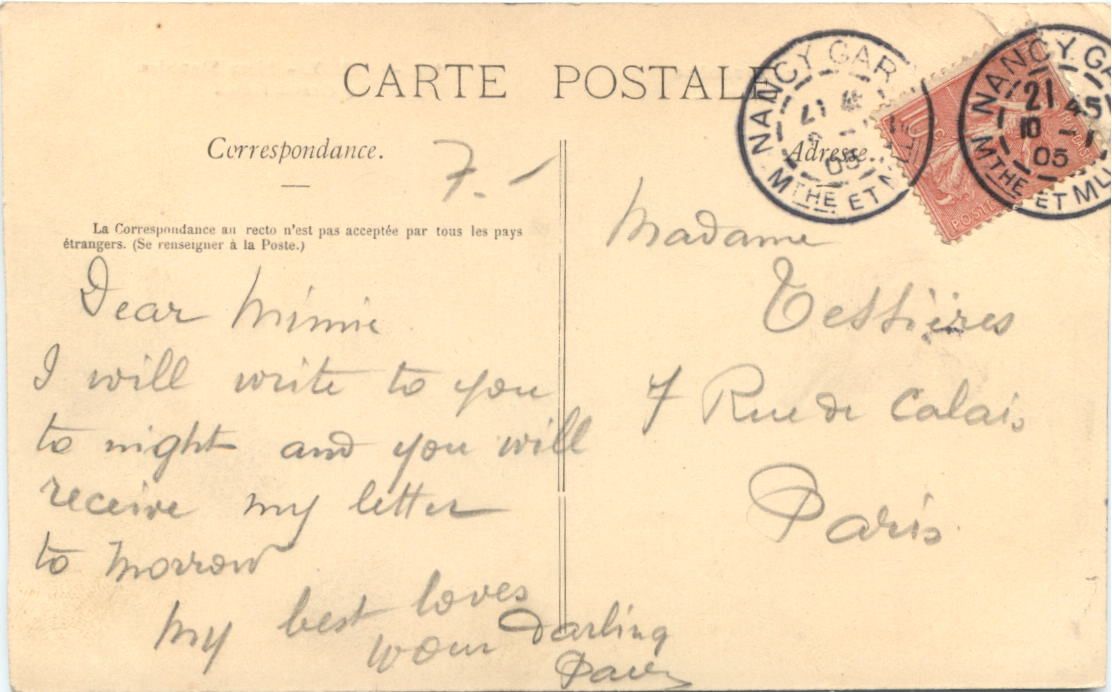 CARTE POSTALE
Correspondance.
7. -
La Correspondance au recto n'est pas acceptée par tous les pays
étrangers. (Se renseigner à la Poste.)
Dear Minnie
I will write to you
to night and you will
receive my letter
to morrow
My best loves
your Darling
Adresse
Madame
Tessières
7 Rue de Calais
Paris
NANCY GARE
05
MTHE ET MLLE
10c
POSTES
NANCY GA
21 45
10 - 1
05
MTHE ET MLLE